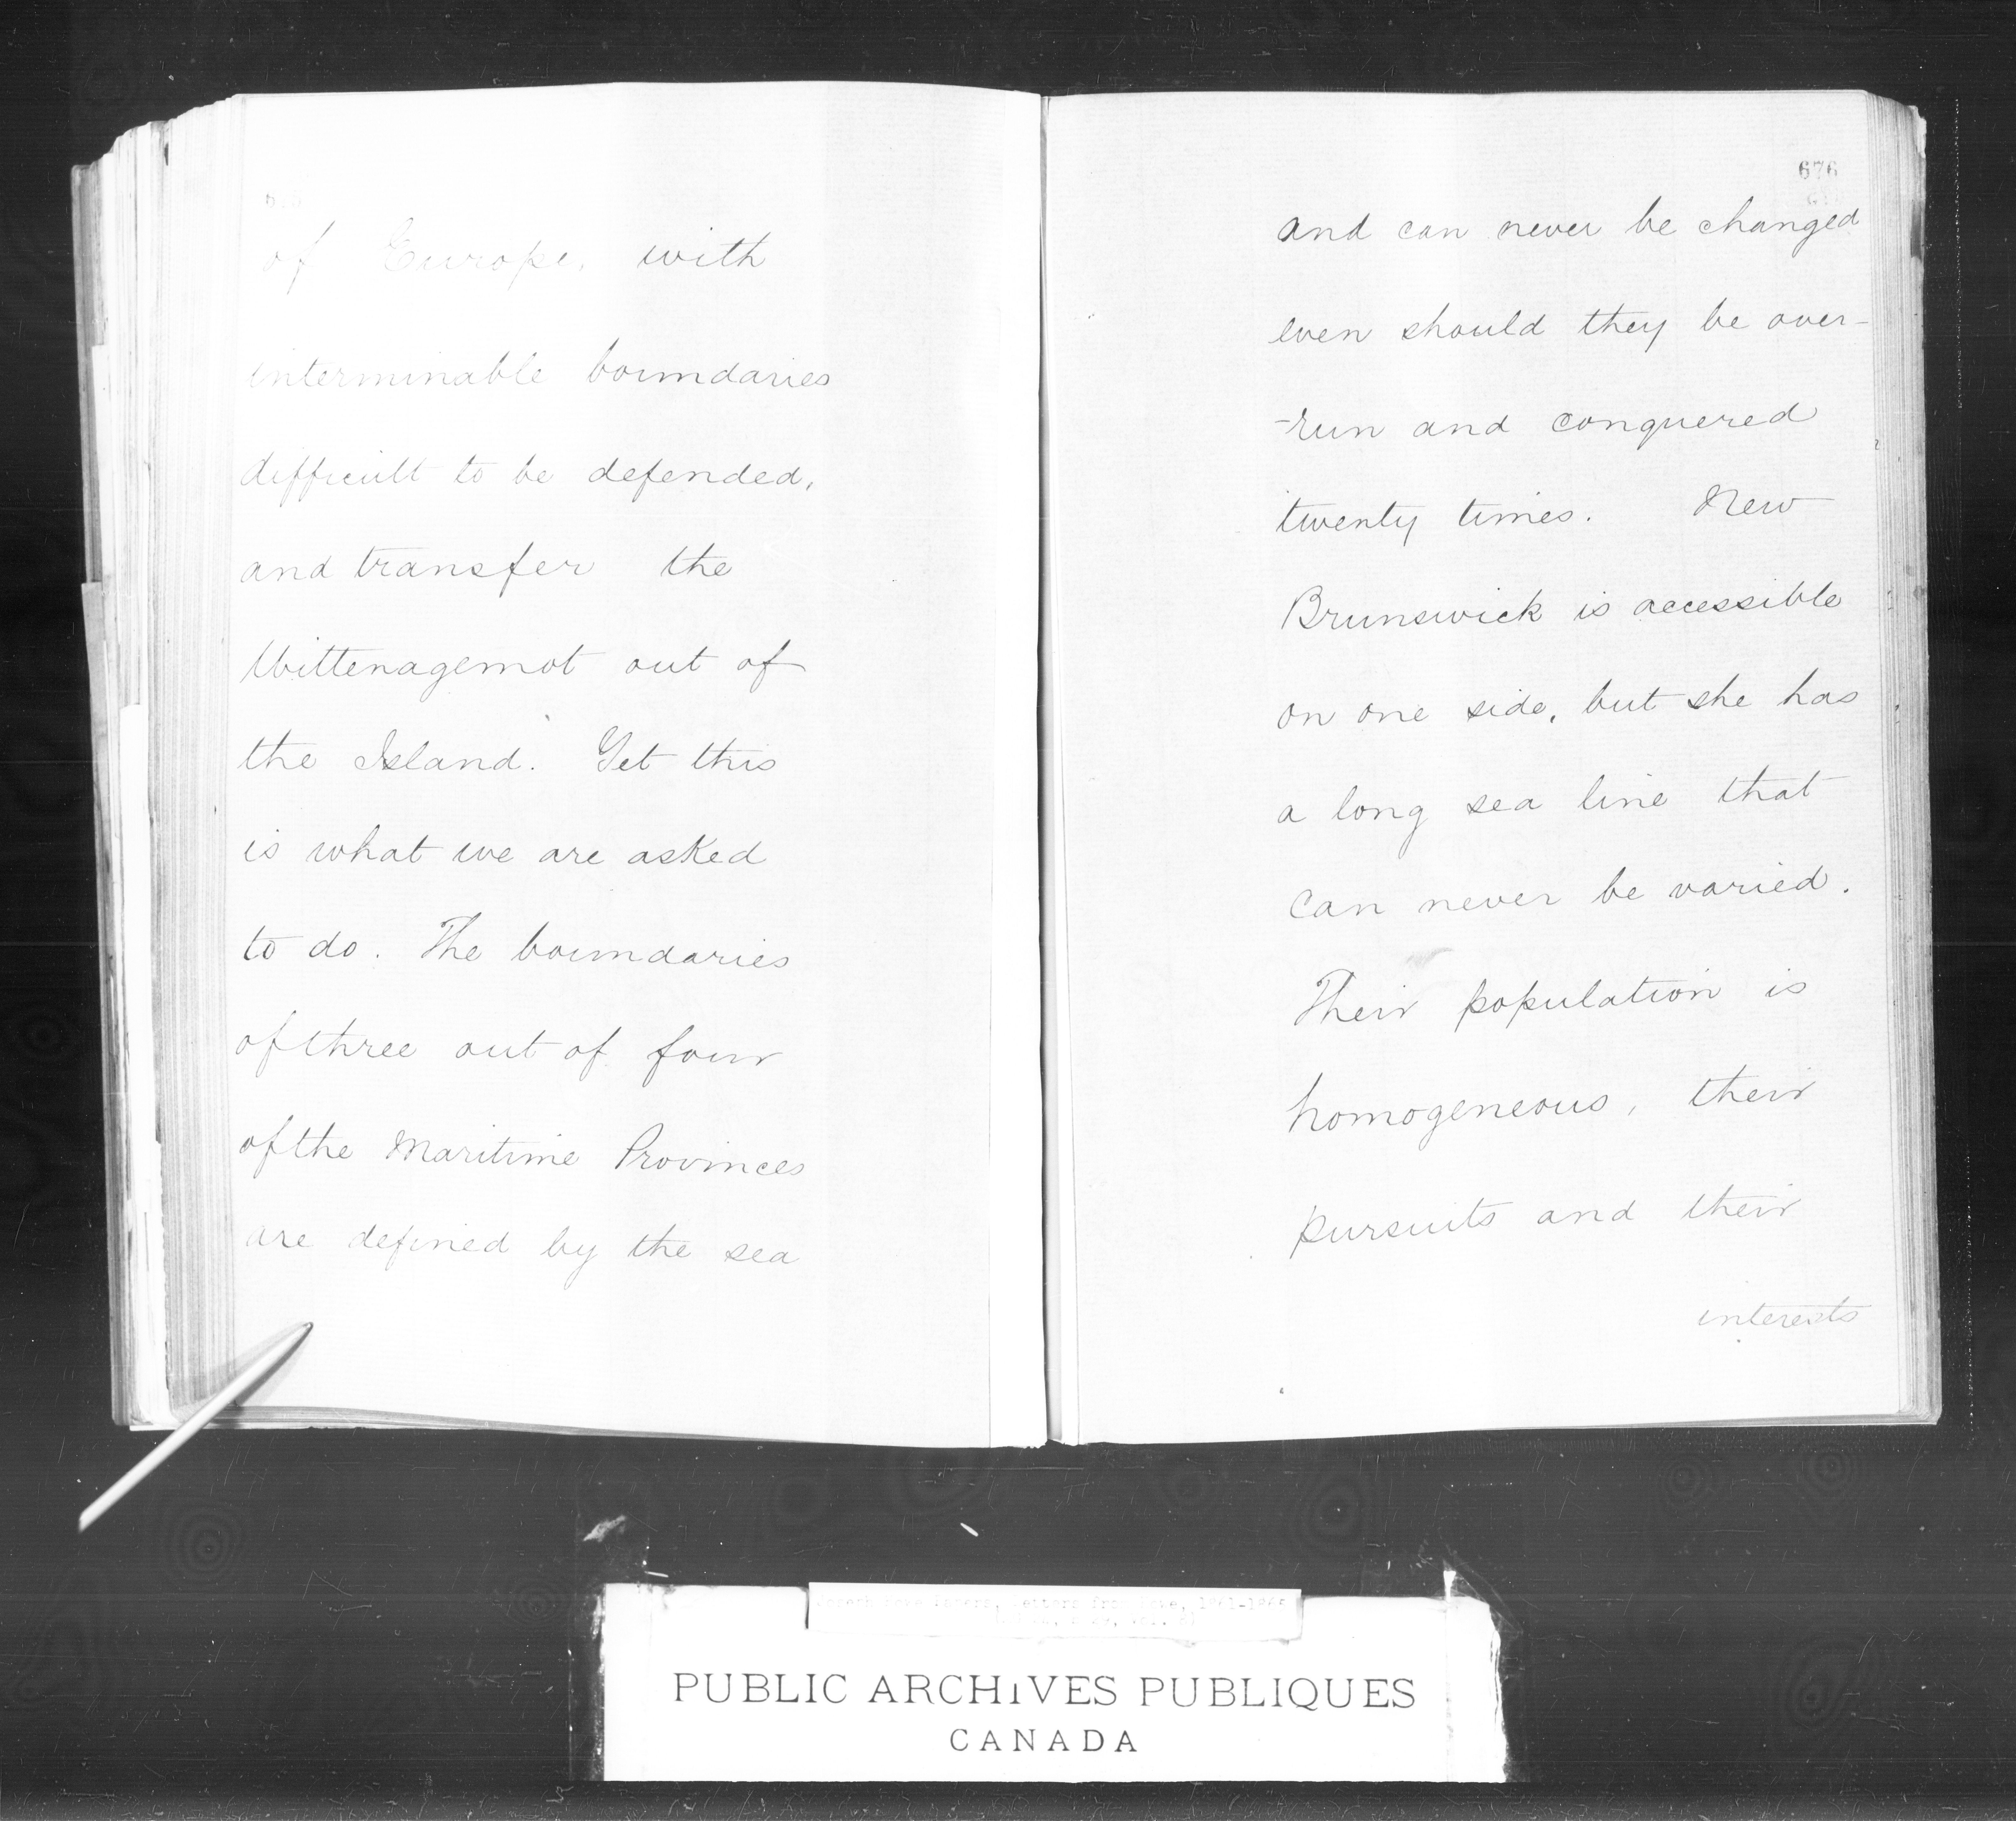 of Europe, with
interminable boundaries
difficult to be defended,
and transfer the
Wittenagemot out of
the Island. Yet this
is what we are asked
to do. The boundaries
of three out of four
of the Maritime Provinces
are defined by the sea
676
and can never be changed
even should they be over-
-run and conquered
twenty times. New
Brunswick is accessible
on one side, but she has
a long sea line that
can never be varied.
Their population is
homogeneous, their
pursuits and their
interests
Joseph Howe Papers, Letters from Howe, 1861-1866
PUBLIC ARCHIVES PUBLIQUES
CANADA